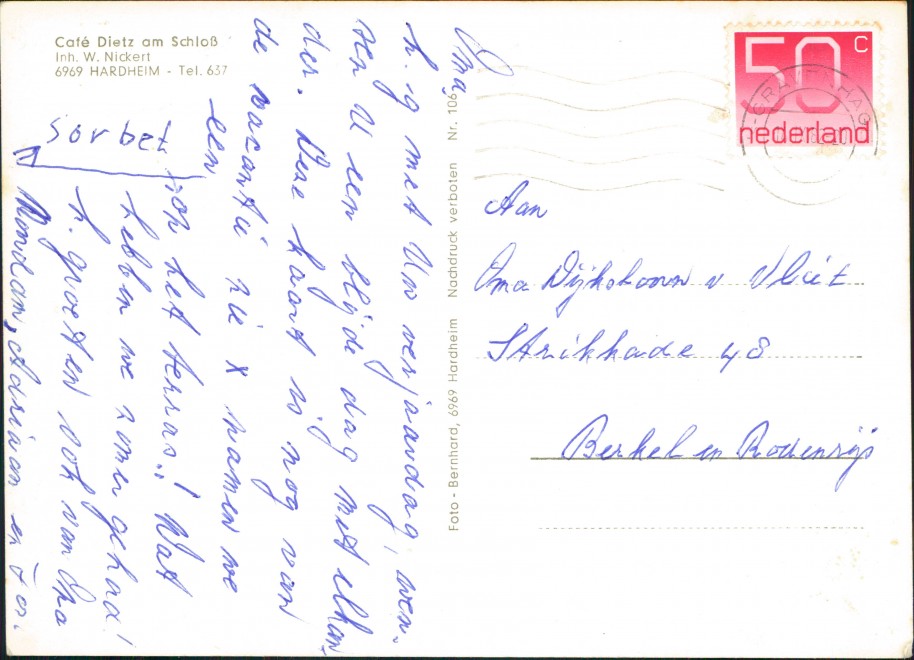 Café Dietz am Schloß
Inh. W. Nickert
6969 HARDHEIM - Tel. 637
Oma,
h. g met Uw verjaardag, wen-
sen U een blijde dag met elkan
der. Deze kaart is nog van
de vacantie zie x namen we
een
sorbet
op het terras! Wat
hebben we zomer gehad!
h. groeten ook van Opa
Adriaan en Ton.
Foto - Bernhard, 6969 Hardheim Nachdruck verboten Nr. 106
50 C
nederland
Aan
Oma Dijkshoorn v Vliet
Strikkade 48
Berkel en Rodenrijs